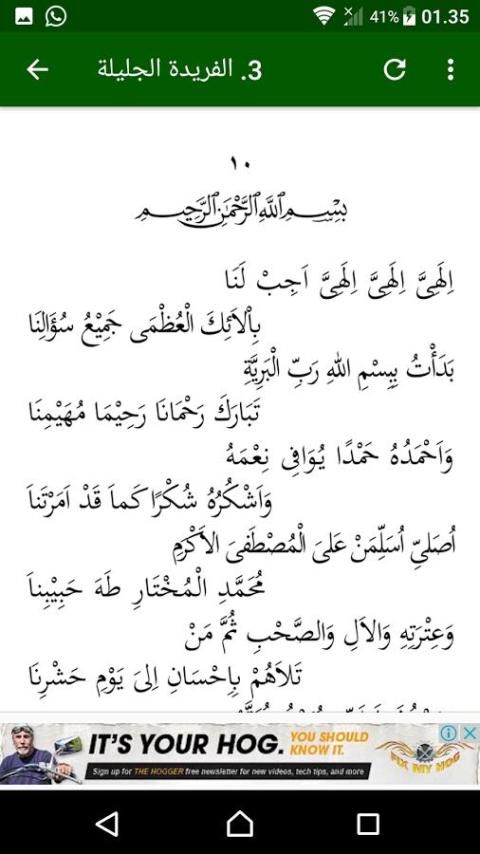 41% 01.35
3. الفريدة الجليلة
١٠
بِسْمِ اللَّهِ الرَّحْمَٰنِ الرَّحِيمِ
اِلَهِىَّ اِلَهِىَّ اِلَهِىَّ اَجِبْ لَنَا
بِاْلاَئِكَ الْعُظْمَى جَمِيْعُ سُؤَالِنَا
بَدَأْتُ بِبِسْمِ اللهِ رَبِّ الْبَرِيَّةِ
تَبَارَكَ رَحْمَانَا رَحِيْمَا مُهَيْمِنَا
وَاَحْمَدُهُ حَمْدًا يُوَافِى نِعْمَهُ
وَاَشْكُرُهُ شُكْرًا كَماَ قَدْ اَمَرْتَناَ
اُصَلِىّ اُسَلِّمَنْ عَلىَ الْمُصْطَفىَ الاَكْرِمِ
مُحَمَّدِ الْمُخْتَارِ طَهَ حَبِيْبِناَ
وَعِتْرَتِهِ وَالاَلِ وَالصَّحْبِ ثُمَّ مَنْ
تَلاَهُمْ بِاِحْسَانِ اِلىَ يَوْمِ حَشْرِنَا
IT'S YOUR HOG. YOU SHOULD KNOW IT.
Sign up for THE HOGGER free newsletter for new videos, tech tips, and more
FIX MY HOG